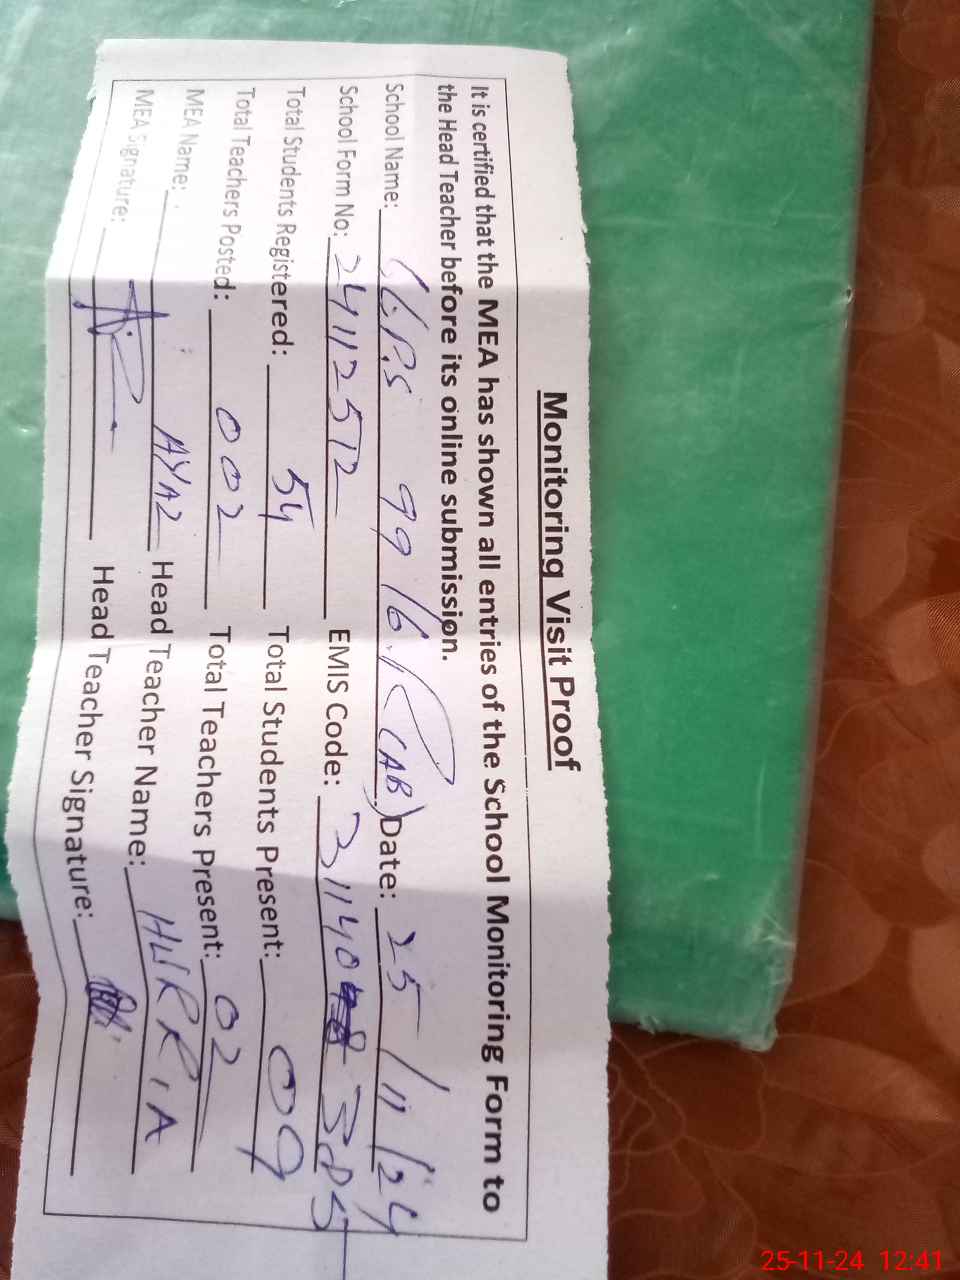 Monitoring Visit Proof
It is certified that the MEA has shown all entries of the School Monitoring Form to
the Head Teacher before its online submission.
School Name: G.G.P.S 99 16.1R (AB) Date: 25/11/24
School Form No: 24112572 EMIS Code: 31140 385
Total Students Registered: 54 Total Students Present: 09
Total Teachers Posted: 002 Total Teachers Present: 02
MEA Name: AYAZ Head Teacher Name: HURRIA
MEA Signature: Head Teacher Signature:
25-11-24 12:41